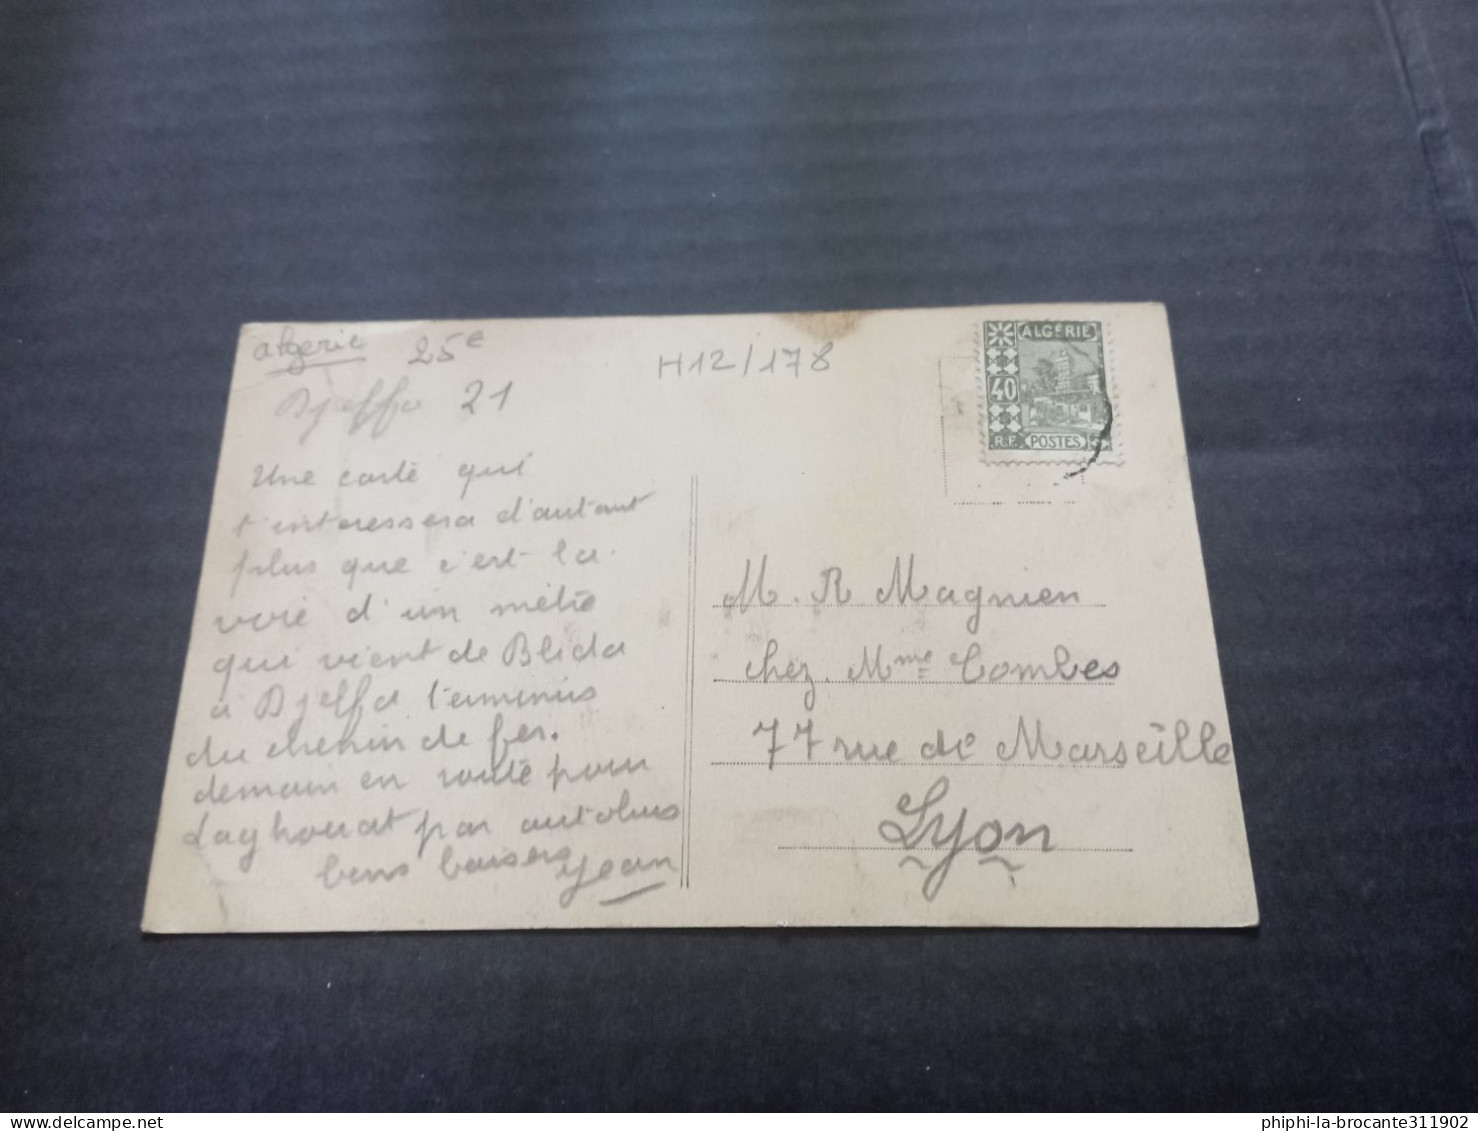 algerie 25€
H12/178
Djelfa 21
Une carte qui
t'interessera d'autant
plus que c'est la
voie d'un mètre
qui vient de Blida
a Djelfa terminus
du chemin de fer.
demain en route pour
Laghouat par autobus
bons baisers
Jean
ALGÉRIE
40
R.F. POSTES
M. R Magnien
chez Mme Combes
77 rue de Marseille
Lyon
phiphi-la-brocante311902